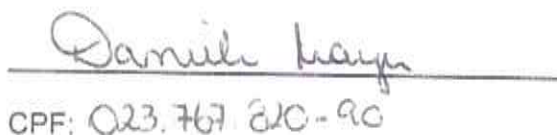 Daniele
CPF: 023.767.820-90